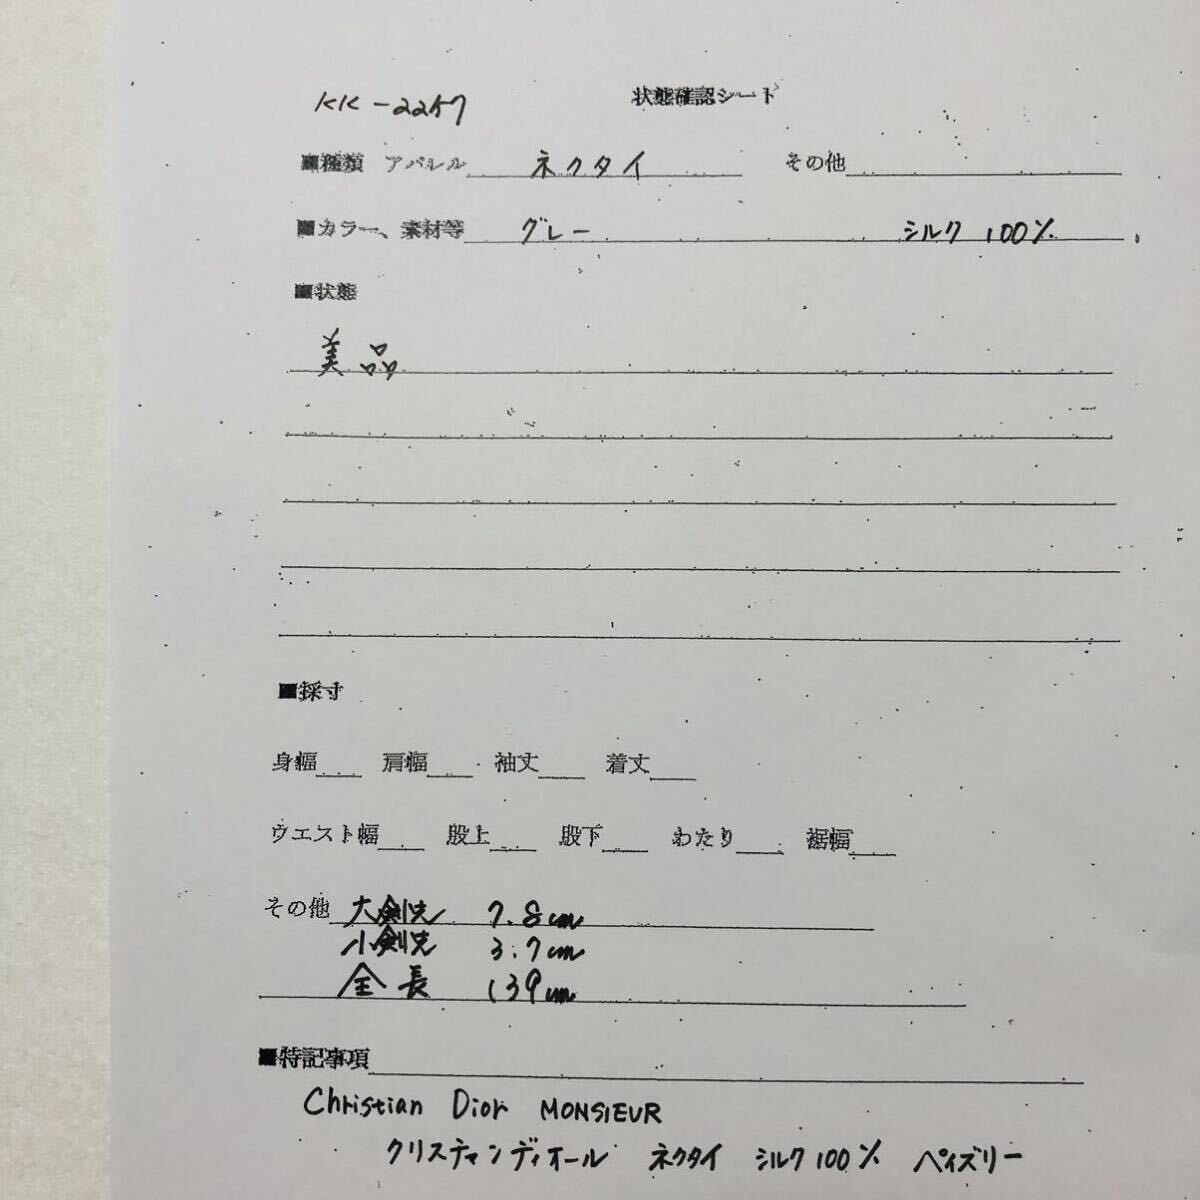 KK-2257 状態確認シート
■種類 アパレル ネクタイ その他
■カラー、素材等 グレー シルク 100%
■状態
美品
■採寸
身幅 肩幅 袖丈 着丈
ウエスト幅 股上 股下 わたり 裾幅
その他 大剣先 7.8cm
小剣先 3.7cm
全長 139cm
■特記事項
Christian Dior MONSIEUR
クリスチャンディオール ネクタイ シルク100% ペイズリー